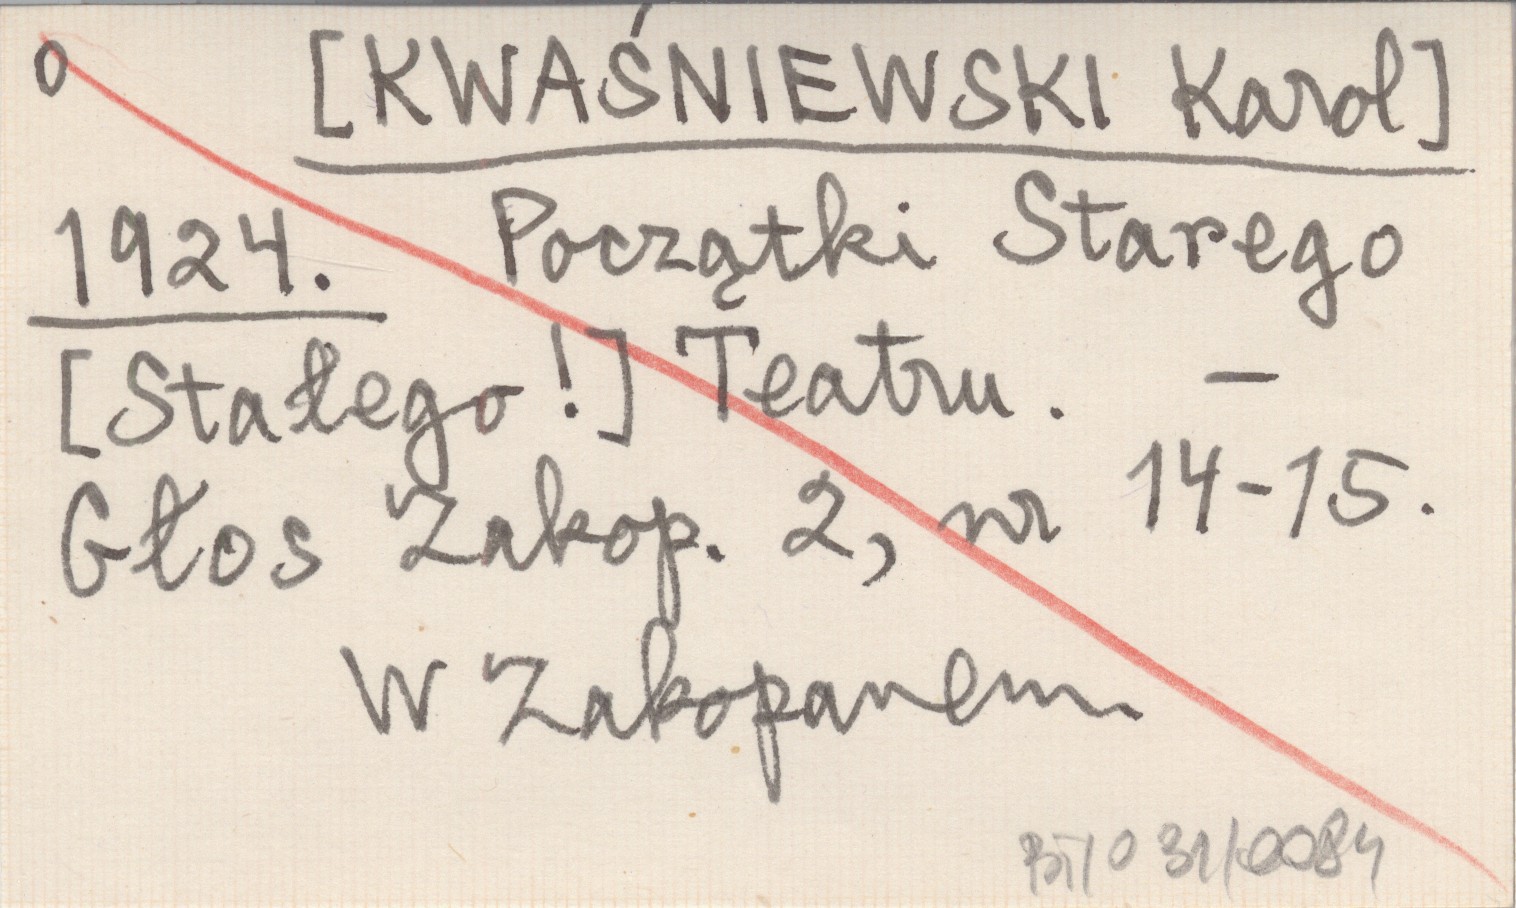 0 [KWAŚNIEWSKI Karol]
1924. Początki Starego
[Stałego!] Teatru. –
Głos Zakop. 2, nr 14-15.
W Zakopanem.
BT/0 31/0084